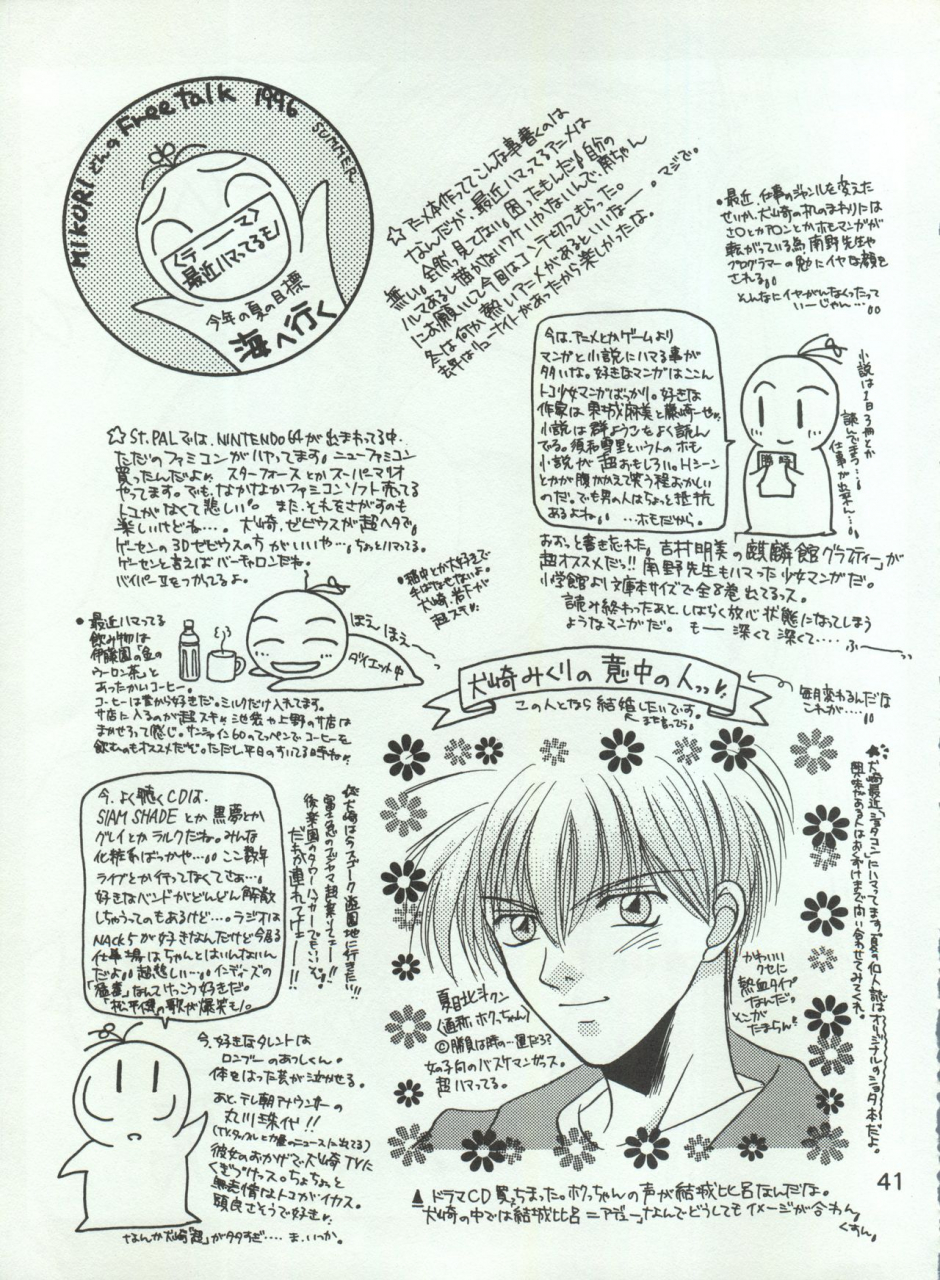 MIKURIさんのFree talk 1996 SUMMER
<テーマ>
最近ハマってるモノ
今年の夏の目標
海へ行く
☆アニメ本作っててこんな事書くのは
なんだが、最近ハマってるアニメは
無い。全然見てない。困ったもんだ。自分の
ハルマあるし描かないワケいかないんで、南ちゃん
にお願いして今回はコンテ切ってもらった。
冬は何か熱いアニメがあるといいなー。マジで。
去年はリューナイトがあったから楽しかったな。
•最近仕事のジャンルを変えた
せいか、犬崎の机のまわりには
さロとかアロンとかホモマンガが
転がっている為南野先生や
プログラマーの勉にイヤな顔を
される。。
そんなにイヤがんなくったって
いーじゃん…。。
今は、アニメとかゲームより
マンガと小説にハマる事が
多いな。好きなマンガはここん
トコ少女マンガばっかり。好きな
作家は東城麻美と藤崎一也。
小説は群ようこをよく読ん
でる。須和雪里という人のホモ
小説が超おもしろい。Hシーン
とかが腹かかえて笑う程おかしい
のだ。でも男の人はちょっと抵抗
あるよね。。…ホモだから。
小説は1日3冊とか
読んできまう…!
仕事が出来ん…。。
☆St.PALでは、NINTENDO64が出まわってる中、
ただのファミコンがハヤってます。ニューファミコン
買ったんだよ。スターフォースとかスーパーマリオ
やってます。でも、なかなかファミコンソフト売ってる
トコがなくて悲しい。また、それをさがすのも
楽しいけどね…。犬崎、ゼビウスが超ヘタで。
ゲーセンの3Dゼビウスの方がいいや…。ちょっとハマってる。
ゲーセンと言えばバーチャロンだね。
バイパーⅡをつかってるよ。
おおっと書き忘れた。吉村明美の「麒麟館グラフィティー」が
超オススメだっ!!南野先生もハマった少女マンガだ。
小学館より文庫本サイズで全8巻出てるっス。
読み終わったあと、しばらく放心状態になってしまう
ようなマンガだ。もー深くて深くて……ふーっ
ほえ ほぇ～
ダイエット中
•最近ハマってる
飲み物は
伊藤園の「金の
ウーロン茶」と
あったかいコーヒー。
コーヒーは昔から好きだ。ミルクだけ入れてます。
サ店に入るのが超スキ。池袋や上野のサ店は
まかせろって感じ。サンシャイン60のてっぺんでコーヒーを
飲むのもオススメだぞ。ただし平日のすいてる時ね。
犬崎みくりの意中の人っっ
この人となら結婚したいです。
まだ言ってら。
毎月変わるんだな
これが……。。
今、よく聴くCDは、
SIAM SHADEとか黒夢とか
グレイとかラルクだね。みんな
化粧系ばっかや…。。ここ数年
ライブとか行ってなくてさぁ…。
好きなバンドがどんどん解散
しちゃうってのもあるけど…。ラジオは
NACK5が好きなんだけど今居る
仕事場はちゃんとはいんない
んだよ。。超悲しい…。。インディーズの
なんてけっこう好きだ。
「松平健の歌」が爆笑モノ。
☆犬崎はラスパーク遊園地に行きたい!!
富士急のフジヤマ超乗りてェー!!
後楽園のタワーハッカーでもいいぞ。
だれか連れてけェー!!
☆犬崎最近「ショタコン」にハマってます。夏の個人誌はオリジナルのショタ本だよ。
興味がある人はおくづけまで問い合わせてみてくれ。
夏目北斗クン
(通称、ホクっちゃん)
©勝負は時の…運だろ?
女の子向のバスケマンガっス。
超ハマってる。
かわいい
クセに
熱血タイプ
なんだ。
そこが
たまらん!
今、好きなタレントは
ロンブーのあつしくん。
体をはった芸が泣かせる。
あと、テレ朝アナウンサーの
丸川珠代!!
(TVタックルとか昼のニュースに出てる)
彼女のおかげで犬崎TVに
くぎづけっス。ちょちょっと
無表情なトコがイカス。
頭良さそうで好き。
なんか犬崎「超」が多すぎ……ま、いっか。
▲ドラマCD買っちまった。ホクっちゃんの声が結城比呂なんだな。
犬崎の中では結城比呂=アデューなんでどうしてもイメージが合わん。
くすん。
41